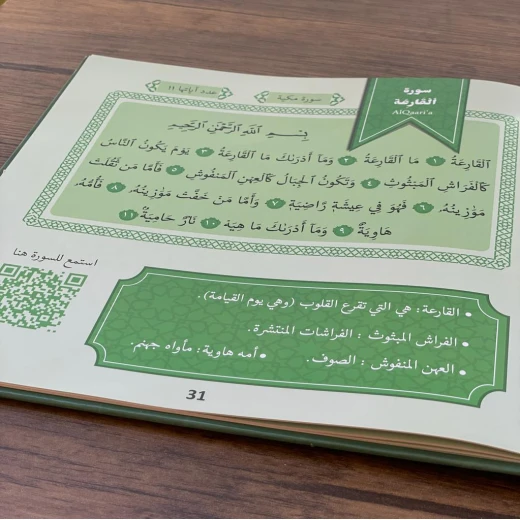 سورة
القارعة
AlQaari'a
سورة مكية
عدد آياتها ١١
بِسْمِ اللَّهِ الرَّحْمَٰنِ الرَّحِيمِ
ٱلْقَارِعَةُ ١ مَا ٱلْقَارِعَةُ ٢ وَمَآ أَدْرَىٰكَ مَا ٱلْقَارِعَةُ ٣ يَوْمَ يَكُونُ ٱلنَّاسُ
كَٱلْفَرَاشِ ٱلْمَبْثُوثِ ٤ وَتَكُونُ ٱلْجِبَالُ كَٱلْعِهْنِ ٱلْمَنفُوشِ ٥ فَأَمَّا مَن ثَقُلَتْ
مَوَٰزِينُهُۥ ٦ فَهُوَ فِى عِيشَةٍ رَّاضِيَةٍ ٧ وَأَمَّا مَنْ خَفَّتْ مَوَٰزِينُهُۥ ٨ فَأُمُّهُۥ
هَاوِيَةٌ ٩ وَمَآ أَدْرَىٰكَ مَا هِيَهْ ١٠ نَارٌ حَامِيَةٌۢ ١١
استمع للسورة هنا
• القارعة : هي التي تقرع القلوب (وهي يوم القيامة).
• الفراش المبثوث : الفراشات المنتشرة.
• العهن المنفوش : الصوف. • أمه هاوية: مأواه جهنم.
31